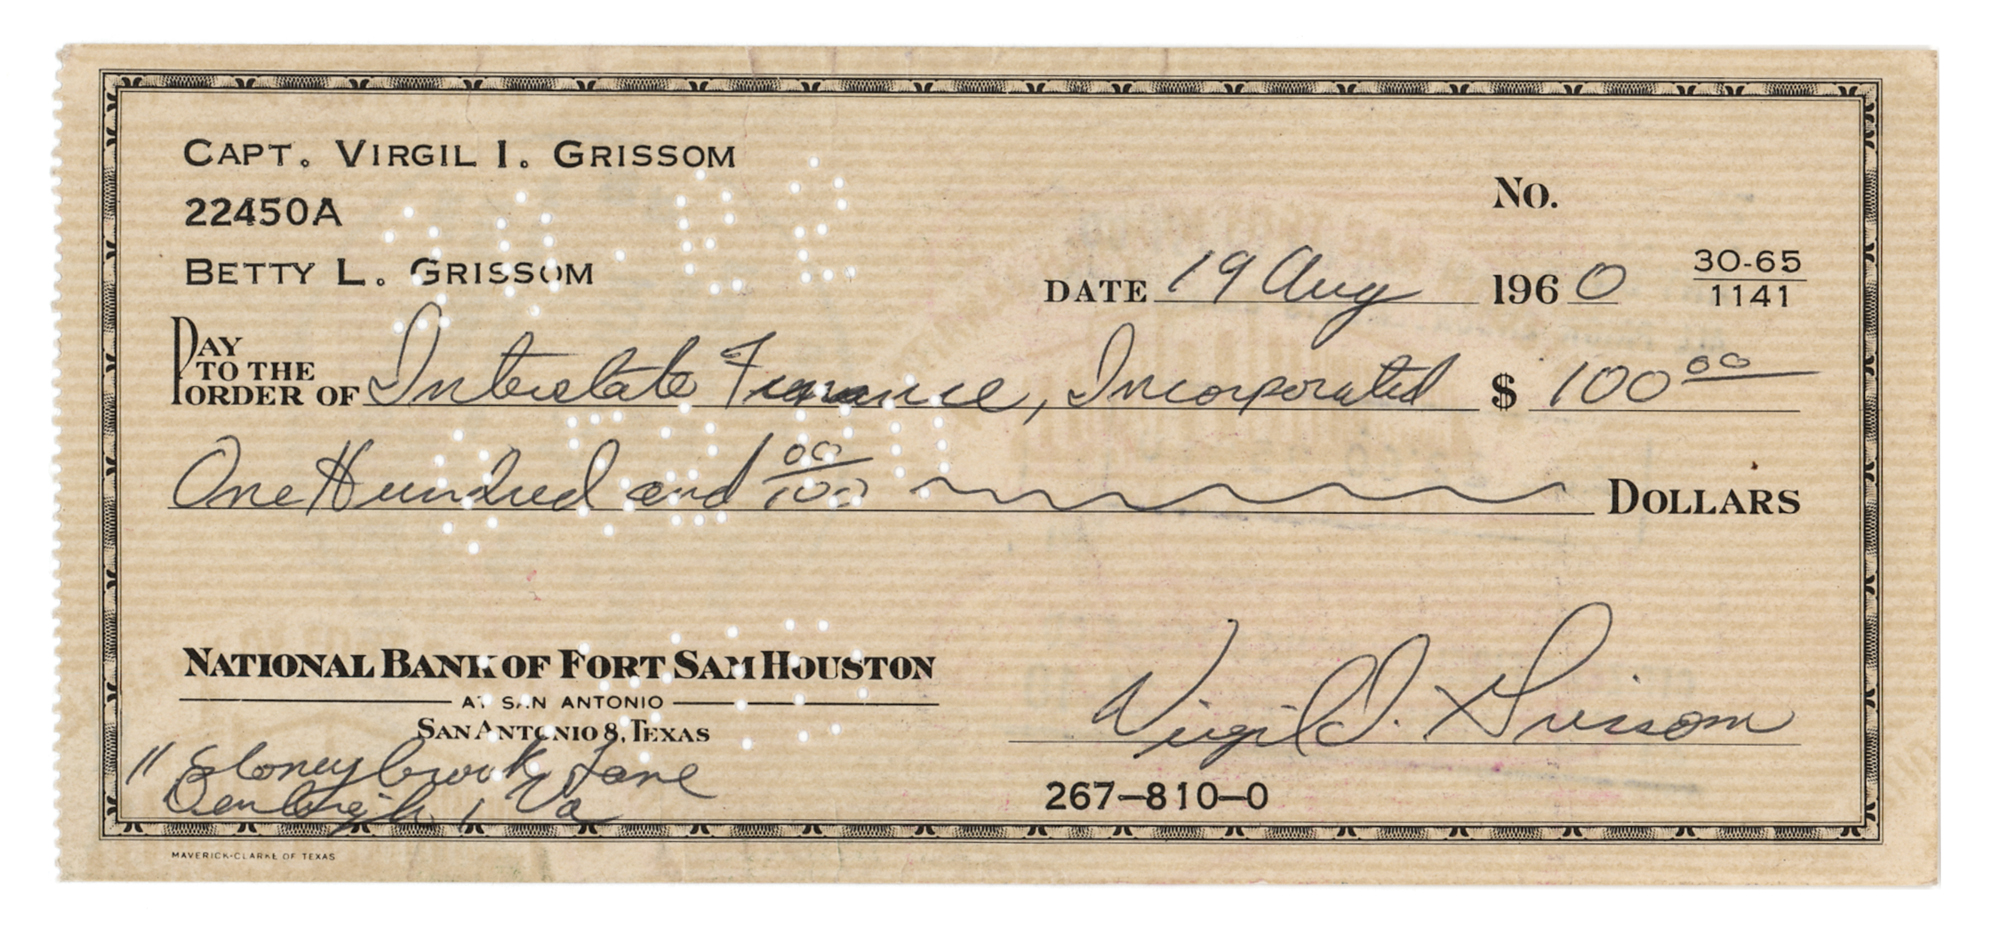 CAPT. VIRGIL I. GRISSOM
22450A
BETTY L. GRISSOM
No.
DATE 19 Aug 1960
30-65
1141
PAY TO THE ORDER OF Interstate Finance, Incorporated $ 100 00
One Hundred and 00/100 DOLLARS
NATIONAL BANK OF FORT SAM HOUSTON
AT SAN ANTONIO
SAN ANTONIO 8, TEXAS
Virgil I. Grissom
11 Stoneybrook Lane
Va
267-810-0
MAVERICK-CLARKE OF TEXAS